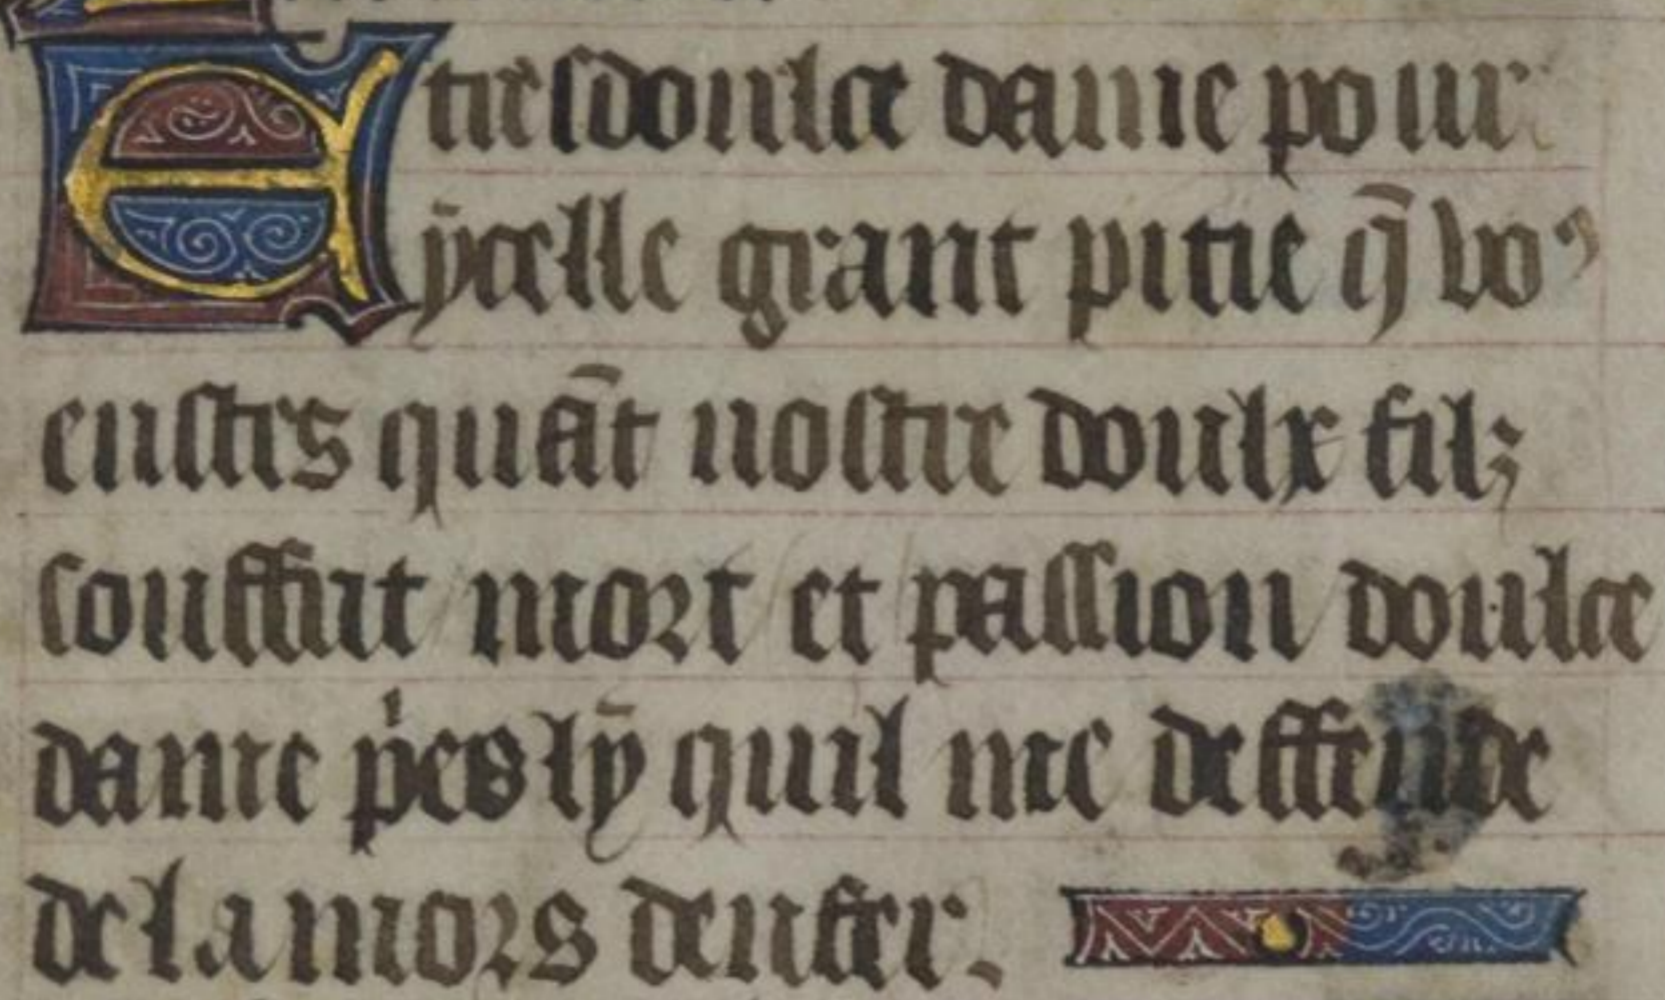 E tresdoulce dame pour
ycelle grant pitie q̄ vo⁹
eustes quāt vostre doulx filz
souffrit mort et passion doulce
dame p̍es ly quil me deffende
de la mors denfer.